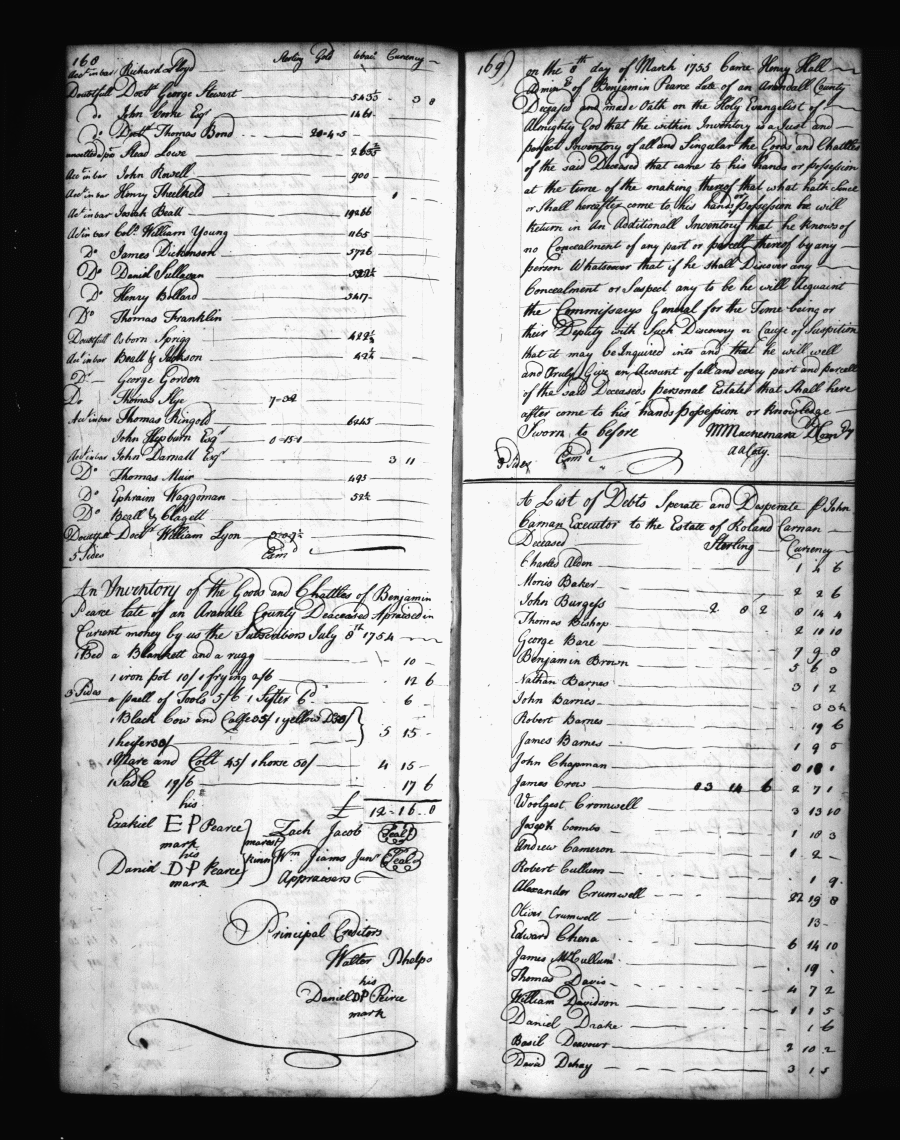 168 Sterling Gold Tobac. Currency
Acct in bar Richard Lloyd
Doubtfull Doctr George Stewart 5433 - 3 8
do John Corne Esqr 1461
do Doctr Thomas Bond 20-4-5
Stead Lowe
Acct in bar John Rowell 900
Acct in bar Henry Threlkeld 1
Act in bar Josiah Beall 19266
Act in bar Colo William Young 1165
Do James Dickenson 5726
Do Daniel Sullavan
Do Henry Bollard 3417
Do Thomas Franklin
Doubtfull Osborn Sprigg 422½
Act in bar Beall & Jackson 42½
Do George Gordon
Do Thomas Nye 7-32
Acct in bar Thomas Ringold 6245
John Hepburn Esqr 0-15-1
Acct in bar John Darnall Esqr 3 11
Do Thomas Muir 495
Do Ephraim Waggoman 52½
Do Beall & Clagett
Doubtfull Doctr William Lyon
5 Sides Exmd
An Inventory of the Goods and Chattles of Benjamin
Pearce late of an Arandle County Deaceased Apraised in
Current money by us the Subscribors July 8th 1754
1 Bed a Blankett and a rugg 10
1 iron pot 10/ 1 frying 2/6 12 6
3 Sides
a psell of Tools 5/6 1 Sifter 6d 6
1 Black Cow and Calfe 35/ 1 yellow Do 50/
1 heifer 30/ 5 15
1 Mare and Colt 45/ 1 horse 50/ 4 15
1 Sadle 17/6 17 6
£ 12-16-0
his
Ezakiel E P Pearce
mark
his
Daniel D P Pearce
mark
nearest
kinn
Zach Jacob Seal
Wm Iiams Junr Seal
Appraisers
Principal Creditors
Walter Phelps
his
Daniel DP Peirce
mark
169) on the 8th day of March 1755 Came Henry Hall
Admin of Benjamin Pearce Late of an Arundall County
Deceased and made Oath on the Holy Evangelist of
Almighty God that the within Inventory is a Just and
perfect Inventory of all and Singular the Goods and Chattles
of the said Deceased that came to his hands or possesion
at the time of the making thereof that what hath Since
or Shall hereafter come to his hands or possession he will
Return in An Additionall Inventory that he knows of
no Concealment of any part or parcell thereof by any
person Whatsoever that if he Shall Discover any
Concealment or Suspect any to be he will Acquaint
the Commissarys General for the Time being or
their Deputy with Such Discovery n Cause of Suspition
that it may be Inquired into and that he will well
and Truly Give an Account of all and every part and parcell
of the said Deceaseds personal Estate that Shall here
after come to his hands possession or knowledge
Sworn to before MMacnemara
aa Coty.
3 Sides Exmd
A List of Debts Sperate and Desperate p John
Carnan Executor to the Estate of Roland Carnan
Deceased Sterling Currency
Charles Alden 1 2 6
Morris Baker 2 2 6
John Burgess 2 8 2 8 14 4
Thomas Bishop 2 10 10
George Bare 7 9 8
Benjamin Brown 5 6 3
Nathan Barnes 3 1 2
John Barnes
Robert Barnes 19 6
James Barnes 1 9 5
John Chapman
James Crow 03 14 6 2 7 1
Woolgest Cromwell 3 13 10
Joseph Coombs 1 18 3
Andrew Cameron 1 2
Robert Cullum 1 9
Alexander Crumwell 22 19 8
Oliver Crumwell 13
Edward Chena 6 14 10
James McCullum 19
Thomas Davis 4 7 2
William Davidson 1 1 5
Daniel Drake 1 6
Basil Deavour 2 10 2
David Dehay 3 1 5